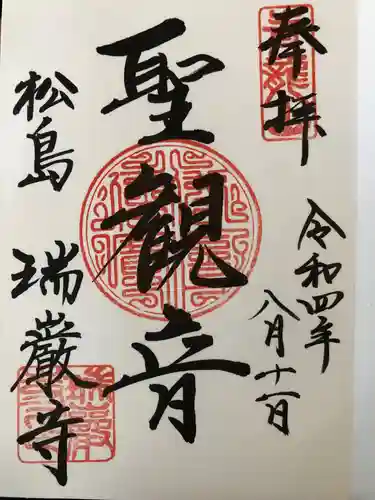 奉拝
令和四年
八月十一日
聖観音
松島 瑞巌寺